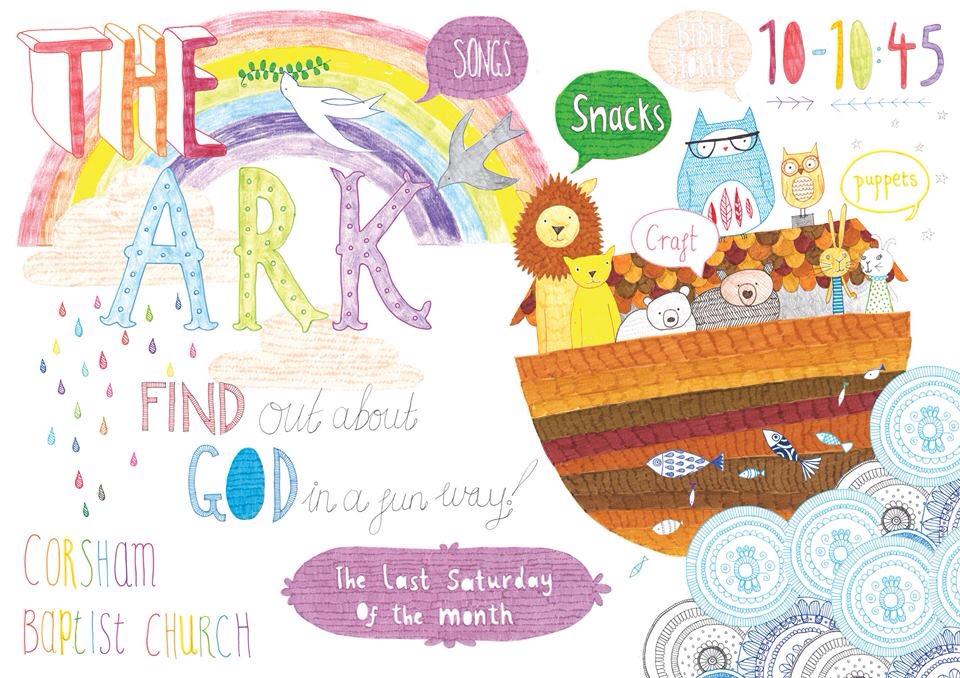 THE
ARK
SONGS
Snacks
BIBLE
STORIES
10-10:45
Craft
puppets
FIND out about
GOD in a fun way!
CORSHAM
BAPtist CHURCH
The last Saturday
Of the month